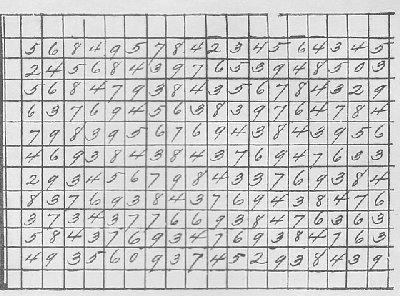 5 6 8 4 9 5 7 8 4 2 3 4 5 6 4 3 4 5
2 4 5 6 8 4 3 9 7 6 5 3 9 4 8 5 0 3
5 6 8 4 7 9 3 8 4 3 5 6 7 8 4 3 2 9
6 3 7 6 9 4 5 6 3 8 3 9 7 6 4 7 8 4
7 9 8 3 9 5 6 7 6 9 4 3 8 4 3 9 5 6
4 6 9 3 8 4 3 8 4 3 7 6 9 4 7 6 3 3
2 9 3 4 5 6 7 9 8 4 3 3 7 6 9 3 8 4
8 3 7 6 9 3 8 4 3 7 6 9 4 3 8 4 7 6
3 7 3 4 3 7 7 6 6 9 3 8 4 7 6 3 6 3
5 8 4 3 7 6 9 3 4 7 6 9 3 8 4 7 6 3
4 9 3 5 6 0 9 3 7 4 5 2 9 3 8 4 3 9